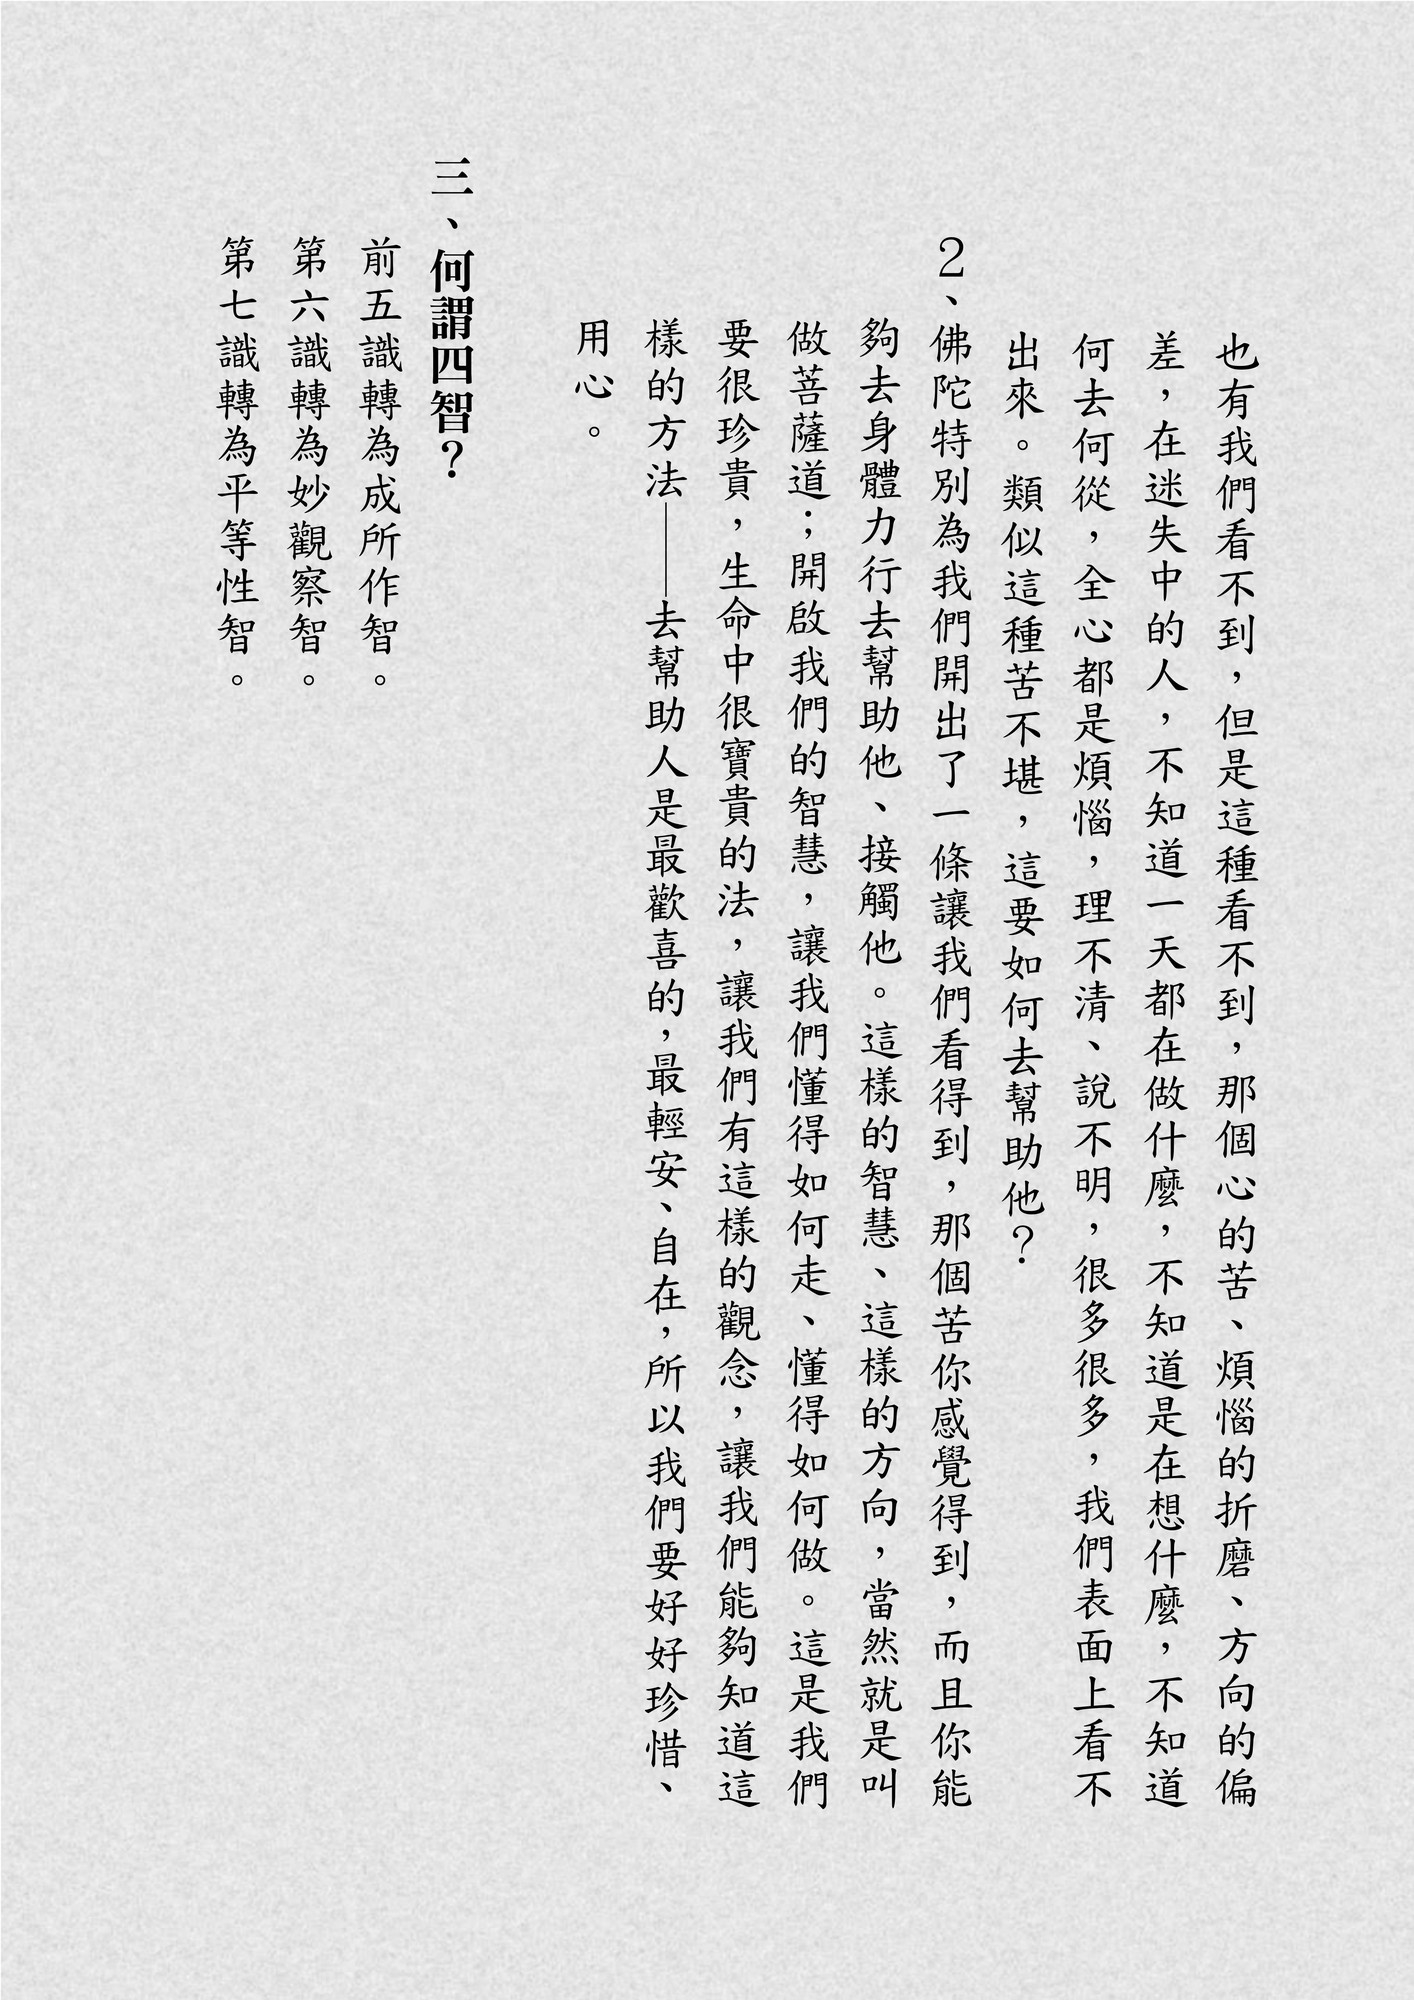 也有我們看不到，但是這種看不到，那個心的苦、煩惱的折磨、方向的偏
差，在迷失中的人，不知道一天都在做什麼，不知道是在想什麼，不知道
何去何從，全心都是煩惱，理不清、說不明，很多很多，我們表面上看不
出來。類似這種苦不堪，這要如何去幫助他？
２、佛陀特別為我們開出了一條讓我們看得到，那個苦你感覺得到，而且你能
夠去身體力行去幫助他、接觸他。這樣的智慧、這樣的方向，當然就是叫
做菩薩道；開啟我們的智慧，讓我們懂得如何走、懂得如何做。這是我們
要很珍貴，生命中很寶貴的法，讓我們有這樣的觀念，讓我們能夠知道這
樣的方法——去幫助人是最歡喜的，最輕安、自在，所以我們要好好珍惜、
用心。
三、何謂四智？
前五識轉為成所作智。
第六識轉為妙觀察智。
第七識轉為平等性智。